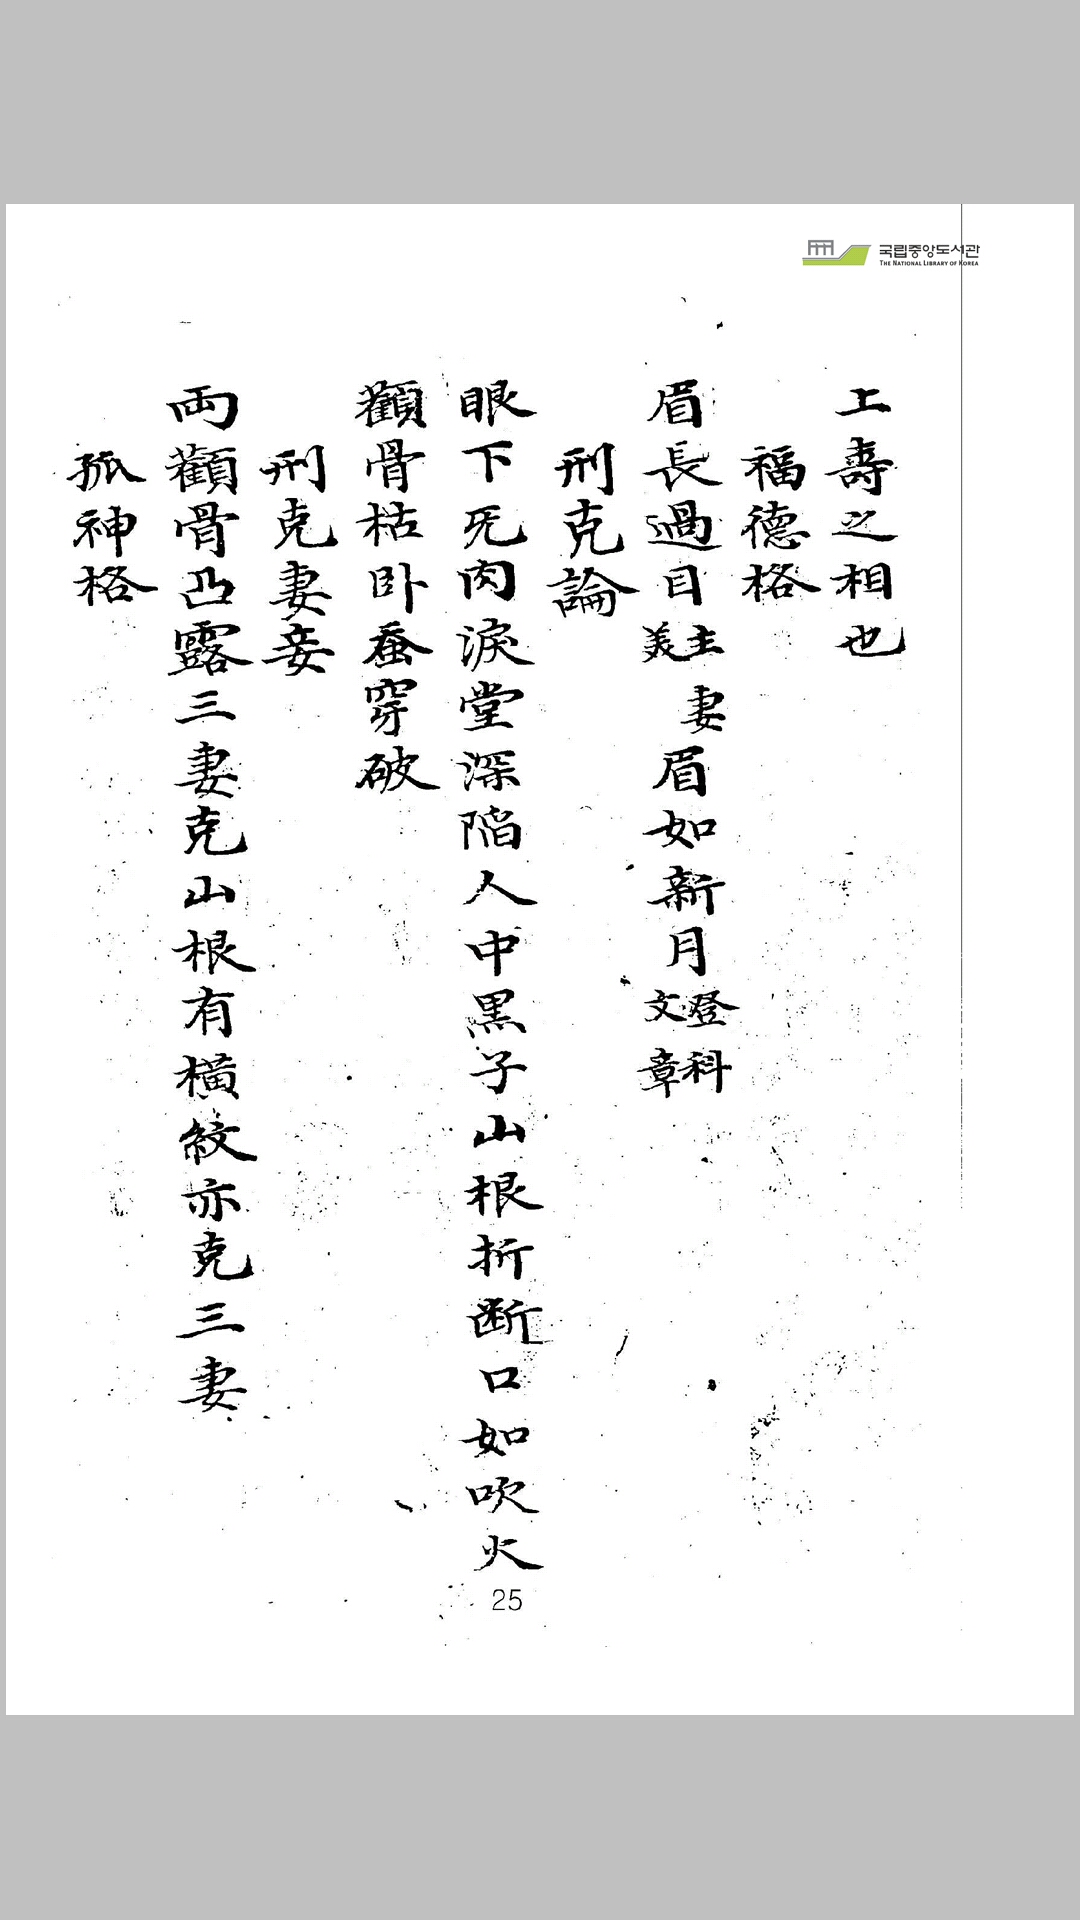 국립중앙도서관
THE NATIONAL LIBRARY OF KOREA
上壽之相也
福德格
眉長過目主妻美眉如新月登科文章
刑克論
眼下旡肉淚堂深陷人中黑子山根折斷口如吹火
顴骨枯卧蚕穿破
刑克妻妾
両顴骨凸露三妻克山根有橫紋亦克三妻
孤神格
25